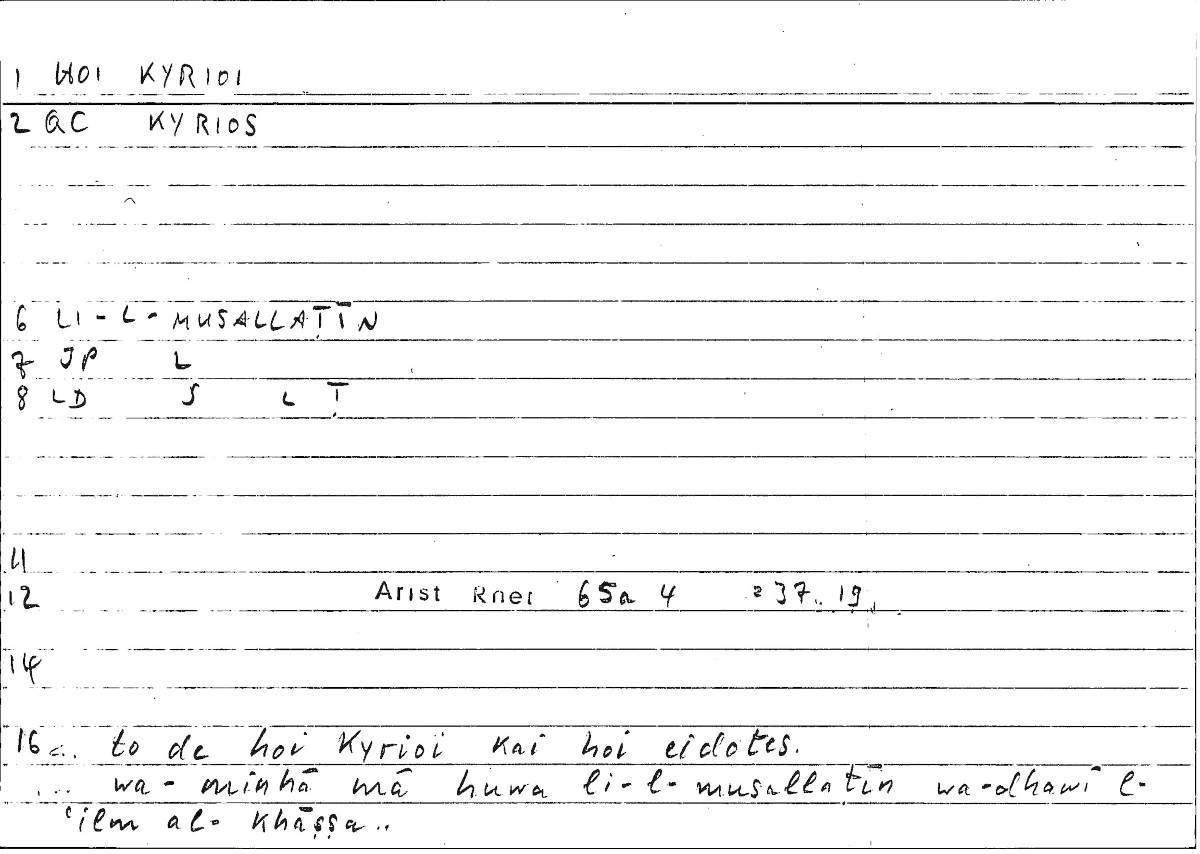 1 HOI KYRIOI
2 QC KYRIOS
6 LI-L-MUSALLAṬĪN
7 JP L
8 LD S L Ṭ
11
12 Arist Rhet 65a 4 = 37.19
14
16 ... to de hoi Kyrioi kai hoi eidotes.
... wa-minhā mā huwa li-l-musallaṭīn wa-dhawī l-
ʿilm al-khāṣṣa..